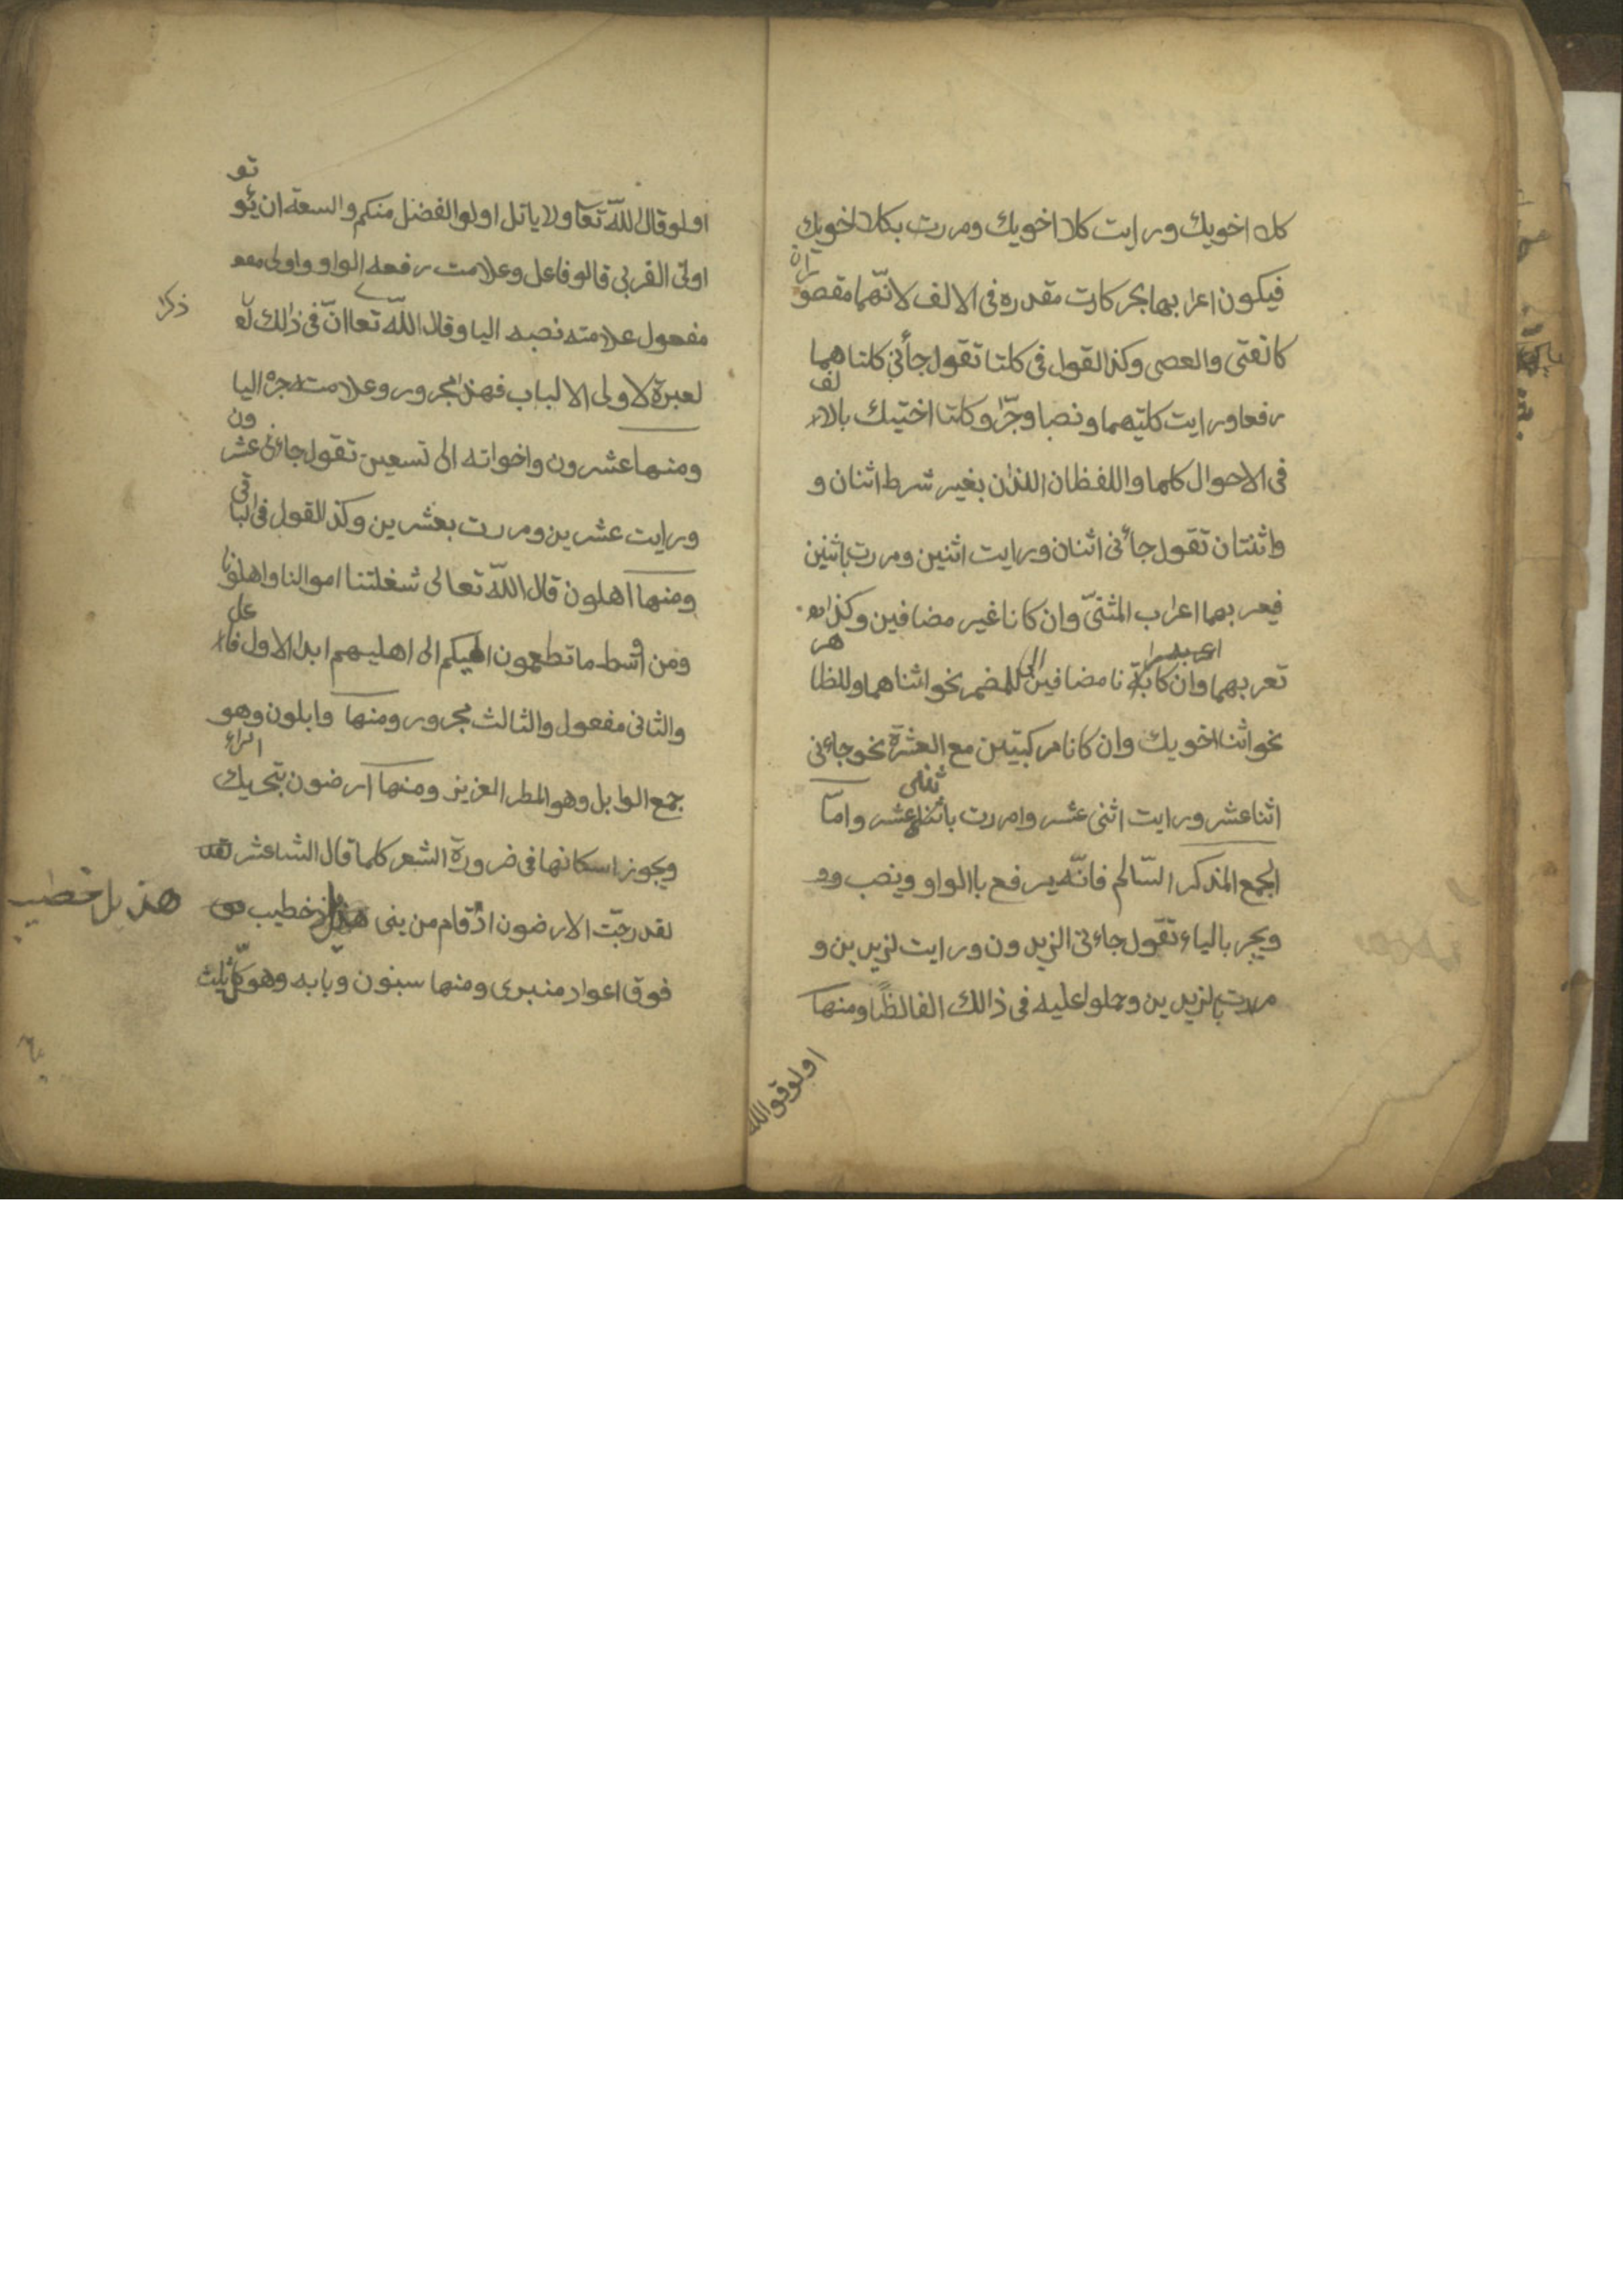 كلا اخويك ورايت كلا اخويك ومررت بكلا اخويك
فيكون اعرابها بحركات مقدره فى الالف لانّهما مقصوراة
كالفتى والعصى وكذالقول فى كلتا تقول جأنى كلتاهما
رفعا ورايت كلتيهما ونصبا وجرّا وكلتا اختيك بالالف
فى الاحوال كلهما واللفظان اللذان بغير شرط اثنان و
واثنتان تقول جأنى اثنان ورايت اثنين ومررت باثنين
فيعربهما اعراب المثنىّ وان كانا غير مضافين وكذا
تعربهما وان كانا مضافين الى للمضمر نحو اثناهما وللظاهر
نحو اثنا اخويك وان كانا مركبتين مع العشرة نحو جاءنى
اثنا عشر ورايت اثنى عشر وامررت باثنى عشر وامّا
الجمع المذكر السّالم فانّه يرفع باالواو وينصب
ويجر بالياء تقول جاءنى الزيدون ورايت لزيدين و
مررت بالزيدين وحملوا عليه فى ذالك الفالظًا ومنها
اولوقو الله
اولو قال اللّه تعا ولا ياتل اولوا الفضل منكم والسعة ان يؤتو
اولى القربى قالو فاعل وعلامت رفعه الواو واولى
مفعول علامته نصبه اليا وقال اللّه تعا انّ فى ذالك
ذكرا
لعبرة لاولى الالباب فهذ مجرور وعلامته جره اليا
ومنها عشرون واخواته الى تسعين تقول جاءنى عشرون
ورايت عشرين ومررت بعشرين وكذالقول فى الباقى
ومنها اهلون قال اللّه تعالى شغلتنا اموالنا واهلونا
ومن اوسط ما تطعمون اهليكم الى اهليهم ابدا الاول فاعل
والثانى مفعول والثالث مجرور ومنها وابلون وهو
جمع الوابل وهو المطر الغزير ومنها ارضون بتحريك الراء
ويجوز اسكانها فى ضرورة الشعر كلما قال الشاعشر
لقد رجّت الارضون اذ قام من بنى هذيل خطيب
هذيل خطيب
فوق اعواد منبرى ومنها سنون وبابه وهو كلّ